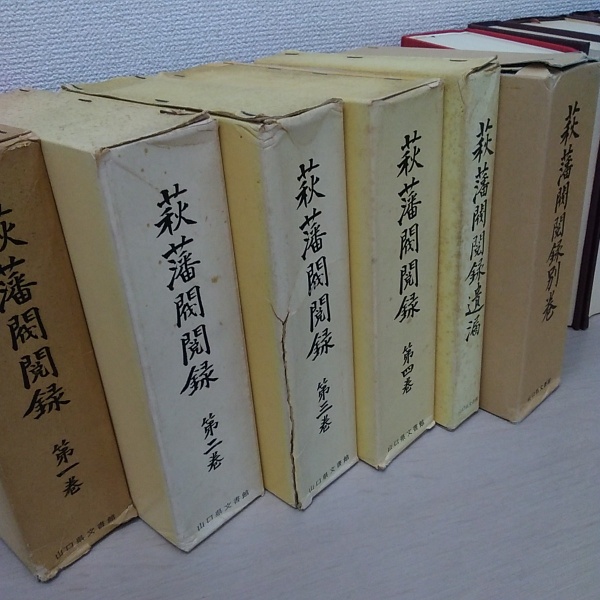 萩藩閥閲録 第一巻
山口県文書館
萩藩閥閲録 第二巻
山口県文書館
萩藩閥閲録 第三巻
山口県文書館
萩藩閥閲録 第四巻
山口県文書館
萩藩閥閲録遺漏
萩藩閥閲録別巻
山口県文書館